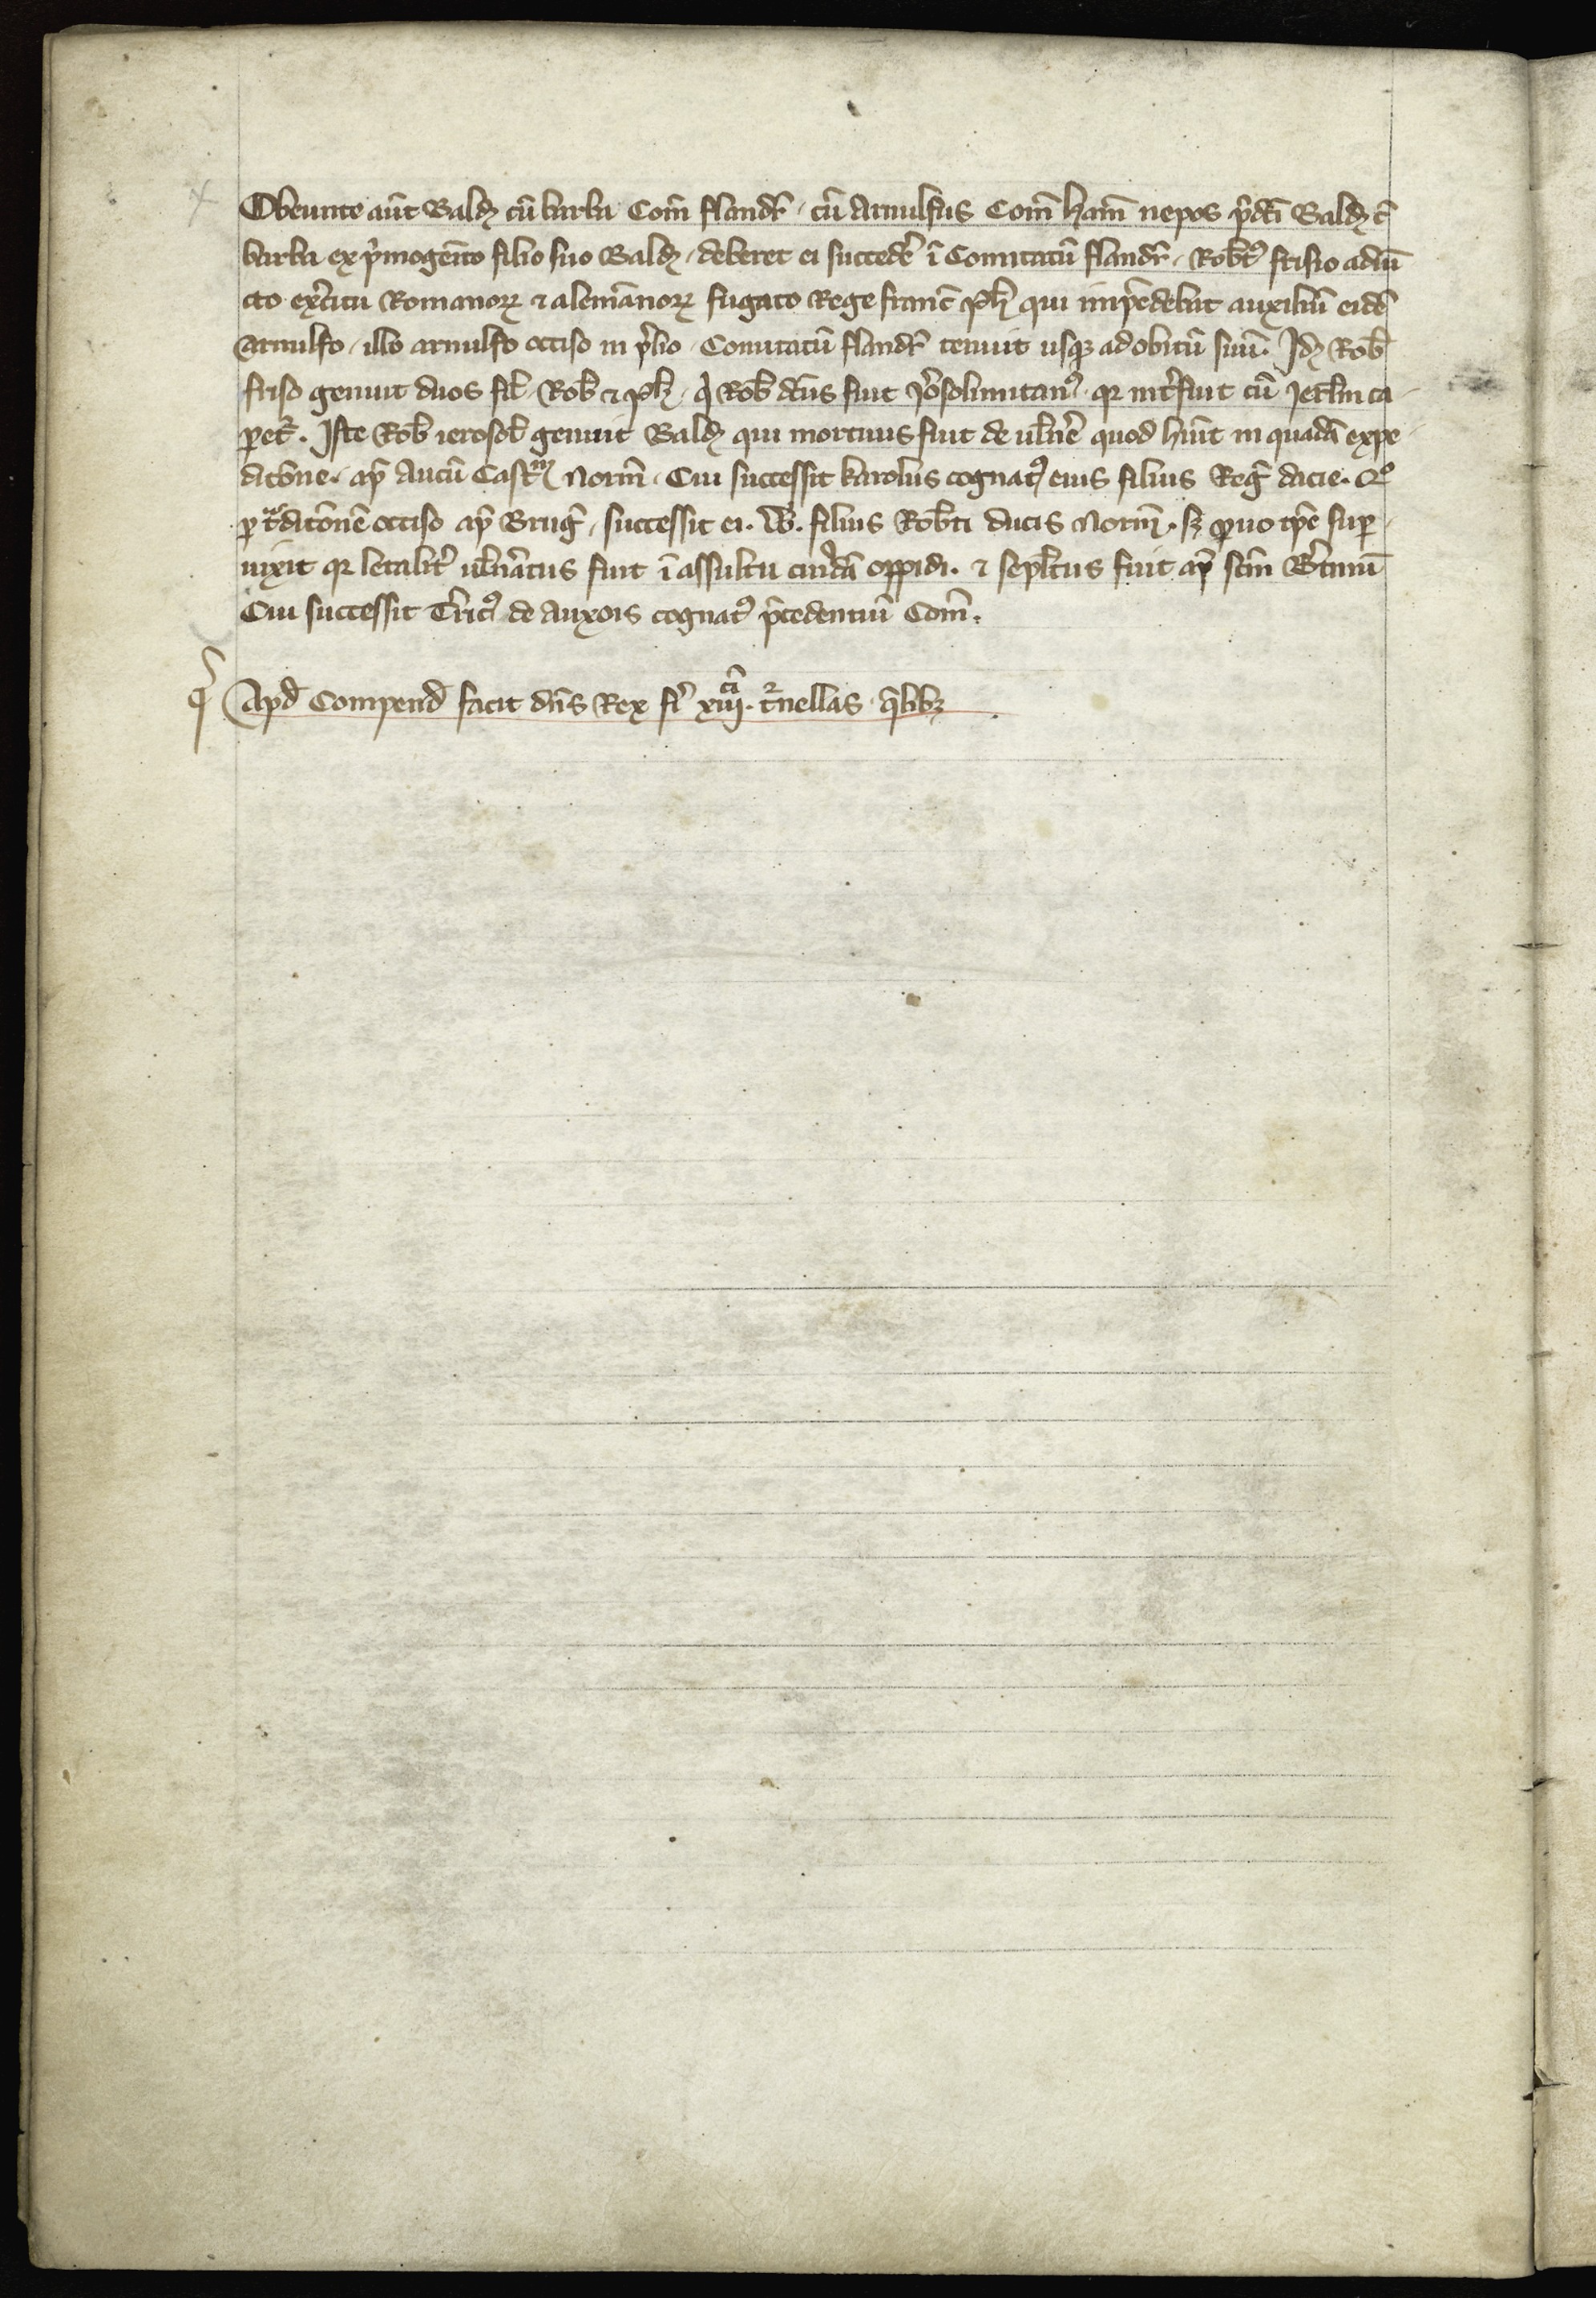 Obeunte aūt Baldꝫ cū barba Com̄ flandr̄ . cū Arnulfus Com̄ ham̄ nepos p̄dc̄i Baldꝫ c̄
barba ex p̄mogenito filio suo Baldꝫ . deberet ei succedē ī Comitatū flandr̄ . Robtꝰ friso adiū
cto exc̄itu Romanoꝝ ⁊ alemānoꝝ fugato Rege franc̄ ph̄ qui impēdebat auxiliū eidē
Arnulfo . illo arnulfo occiso in p̄lio . Comitatū flandr̄ tenuit usqꝫ ad obitū suū . Idꝫ Rob̄
friso genuit duos fil̄ . Rob̄ ⁊ ph̄ . q̄ Rob̄ dc̄us fuit Ieosolimitanꝰ . qꝛ int̄fuit cū Ierl̄m ca
ꝑet̄ . Iste Rob̄ ierosol̄ genuit Baldꝫ qui mortuus fuit de uln̄e quod hūit in quadā expe
dicōne . ap̄ Aucū Castrū Norm̄ . Cui successit karolus cognatꝰ eius filius Reg̃ dacie . Qº
ꝑ t̃dicōnē occiso ap̄ Brug̃ . successit ei . W̄ . filius Rob̄ti ducis Norm̄ . sꝫ ꝑuo tp̄e suꝑ
uixit qꝛ letalit̄ uln̄atus fuit ī assultu cuiꝰdā oppidi . ⁊ sepl̄tus fuit ap̄ sc̄m B̄tinū
Cui successit T̄ricꝰ de Auxois cognatꝰ p̄cedentiū Com̄ .
q̄ Apd̄ Compend̄ facit dn̄s Rex fi' xiiij . t̃nellas q̄libꝫ